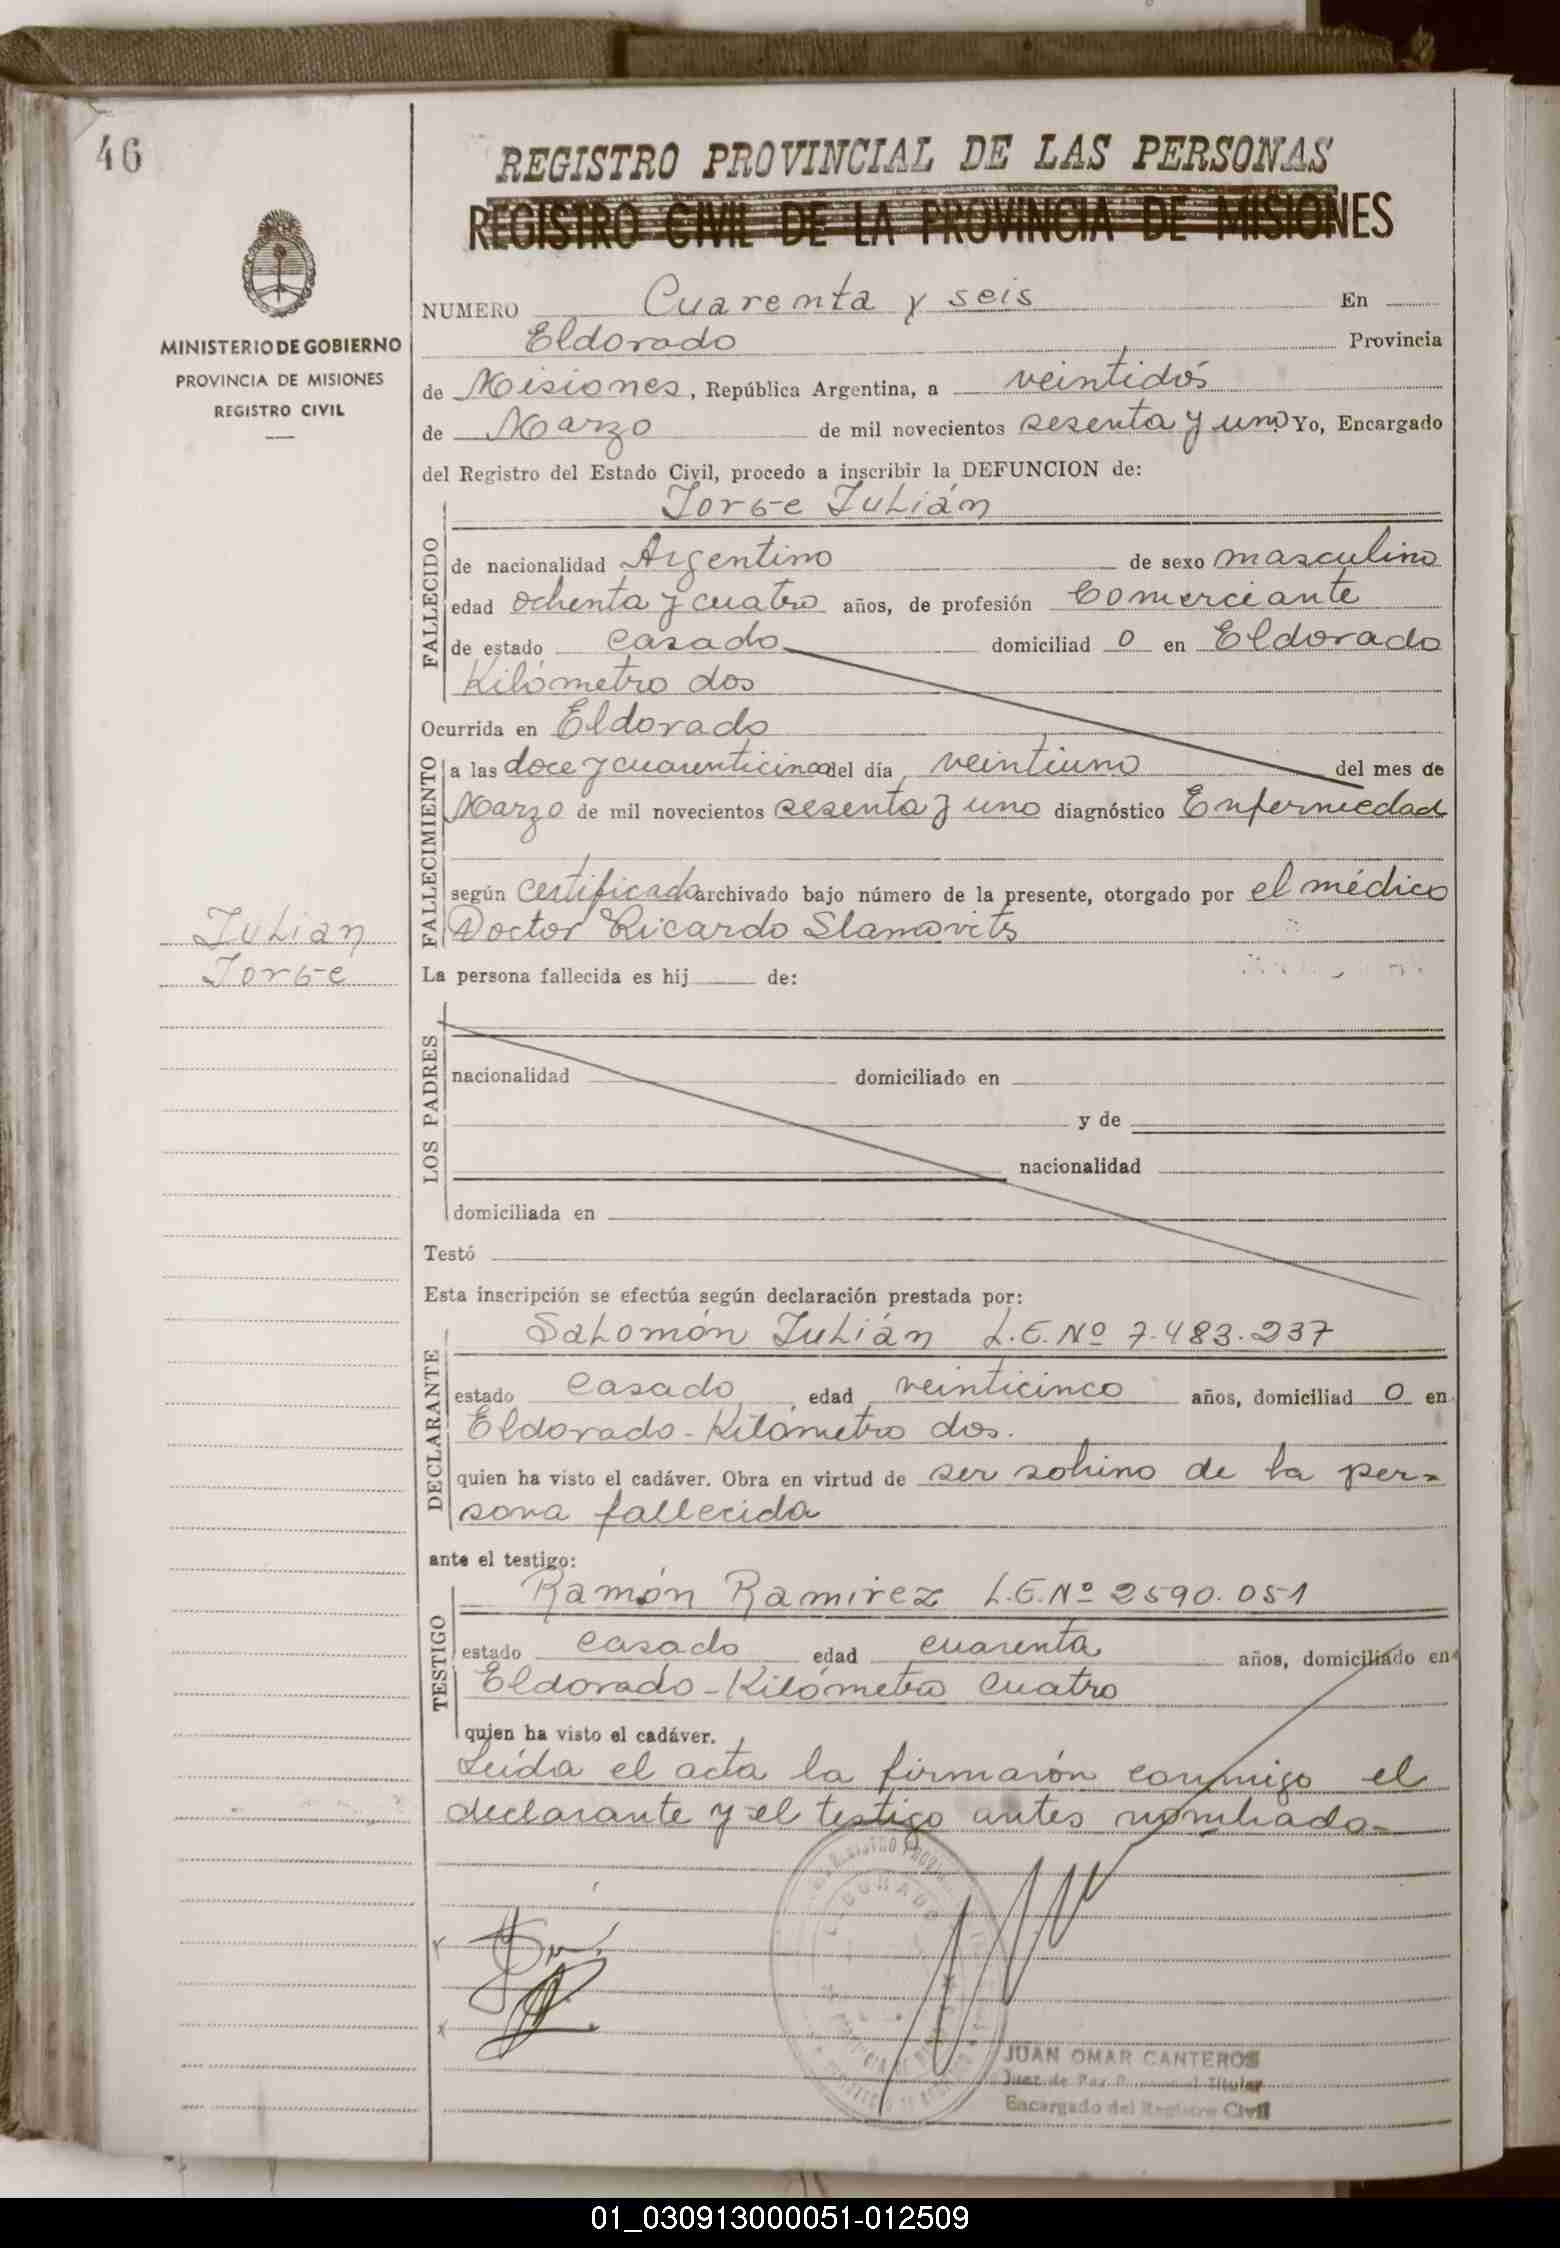 46
REGISTRO PROVINCIAL DE LAS PERSONAS
REGISTRO CIVIL DE LA PROVINCIA DE MISIONES
MINISTERIO DE GOBIERNO
PROVINCIA DE MISIONES
REGISTRO CIVIL
NUMERO Cuarenta y seis En
Eldorado Provincia
de Misiones, República Argentina, a veintidós
de Marzo de mil novecientos sesenta y uno Yo, Encargado
del Registro del Estado Civil, procedo a inscribir la DEFUNCION de:
Jorge Julián
FALLECIDO
de nacionalidad Argentino de sexo masculino
edad ochenta y cuatro años, de profesión Comerciante
de estado casado domiciliad o en Eldorado
Kilómetro dos
Ocurrida en Eldorado
FALLECIMIENTO
a las doce y cuarenticinco del día veintiuno del mes de
Marzo de mil novecientos sesenta y uno diagnóstico Enfermedad
según certificado archivado bajo número de la presente, otorgado por el médico
Doctor Ricardo Slamovits
Julian
Jorge
La persona fallecida es hij de:
LOS PADRES
nacionalidad domiciliado en
y de
nacionalidad
domiciliada en
Testó
Esta inscripción se efectúa según declaración prestada por:
Salomón Julián L.E.Nº 7.483.237
DECLARANTE
estado casado edad veinticinco años, domiciliad o en
Eldorado - Kilómetro dos.
quien ha visto el cadáver. Obra en virtud de ser sobino de la per=
sona fallecida
ante el testigo:
Ramón Ramirez L.E.Nº 2590.051
TESTIGO
estado casado edad cuarenta años, domiciliado en
Eldorado - Kilómetro cuatro
quien ha visto el cadáver.
Leída el acta la firmarón conmigo el
declarante y el testigo antes nombrado.-
JUAN OMAR CANTEROS
Juez de Paz Titular
Encargado del Registro Civil
01_030913000051-012509